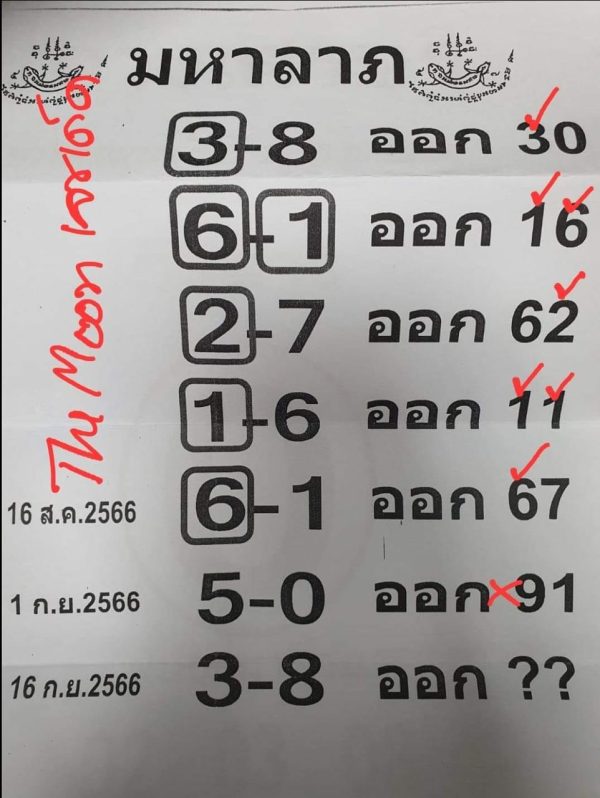 มหาลาภ
3-8 ออก 30
6-1 ออก 16
2-7 ออก 62
1-6 ออก 11
16 ส.ค.2566 6-1 ออก 67
1 ก.ย.2566 5-0 ออก 91
16 ก.ย.2566 3-8 ออก ??
The Moon